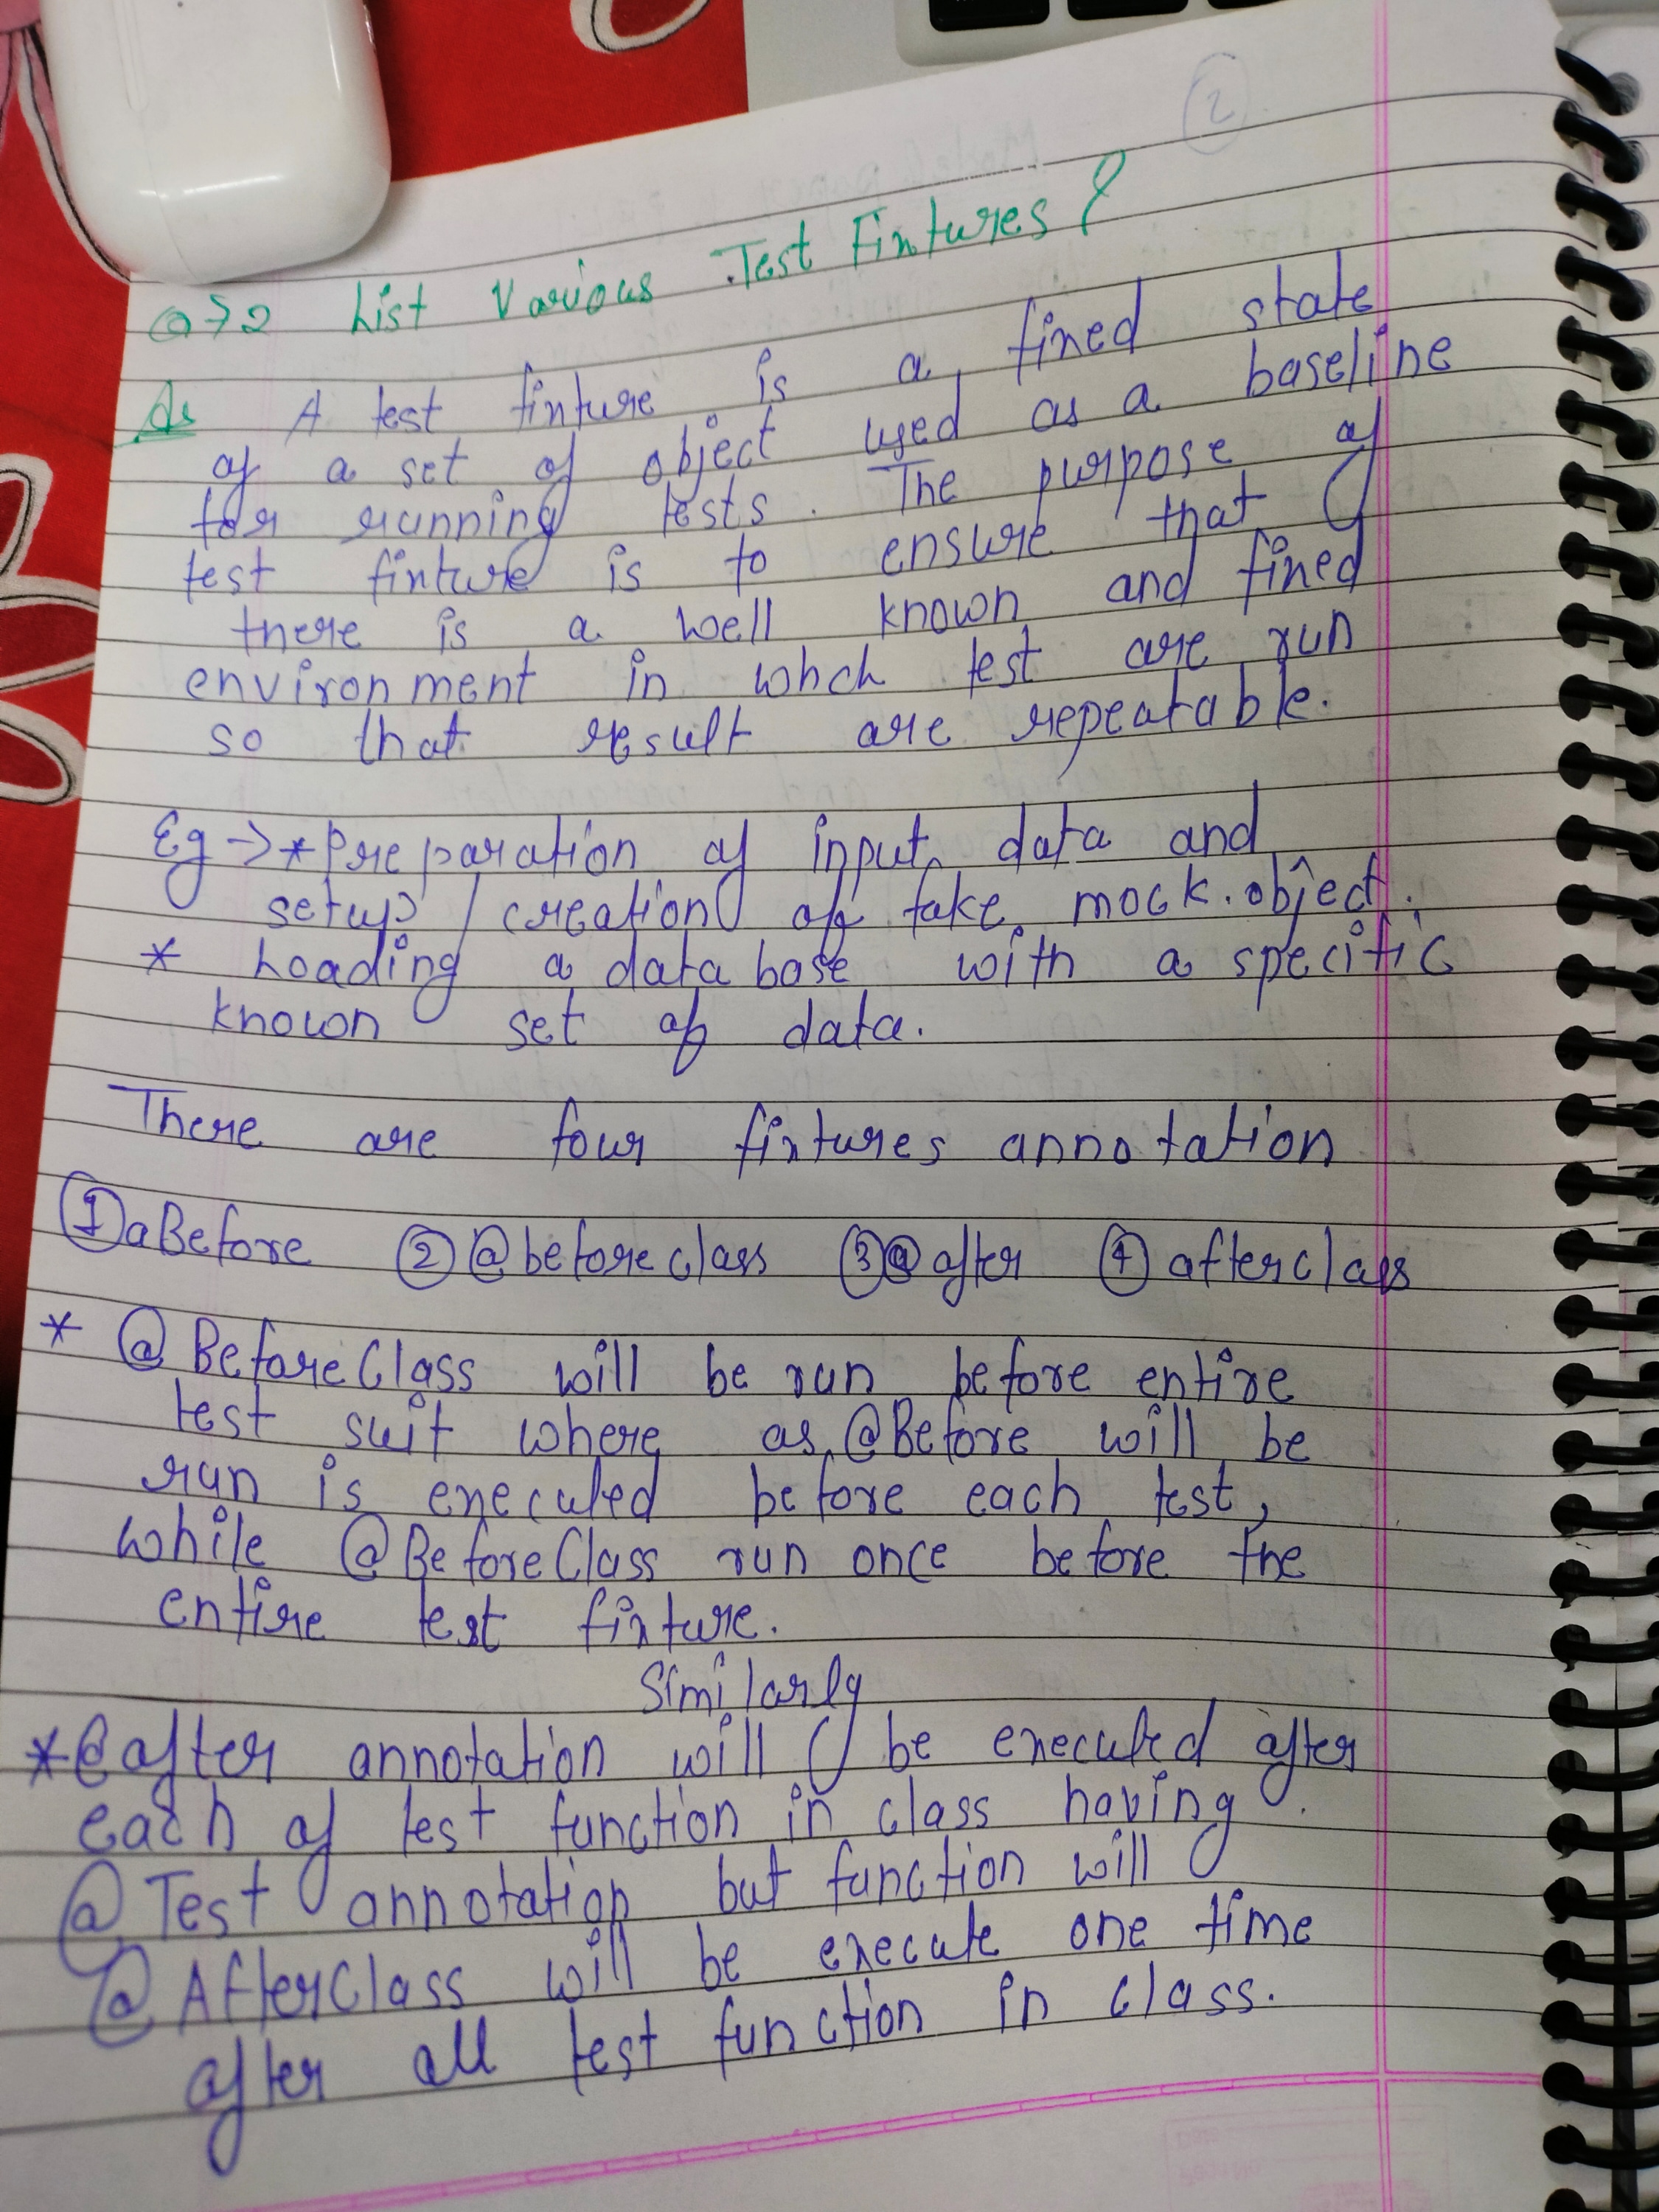 2
Q→2 List Various Test Fixtures?
As A test fixture is a fixed state
of a set of object used as a baseline
for running tests. The purpose of
test fixture is to ensure that
there is a well known and fixed
environment in whch test are run
so that result are repeatable.
Eg →* Preparation of input data and
setup / creation of fake mock object.
* Loading a database with a specific
known set of data.
There are four fixtures annotation
① aBefore ② @beforeclass ③ @after ④ afterclass
* @BeforeClass will be run before entire
test suit where as @Before will be
run is executed before each test,
while @BeforeClass run once before the
entire test fixture.
Similarly
* @after annotation will be executed after
each of test function in class having
@Test annotation but function will
@AfterClass will be execute one time
after all test function in class.